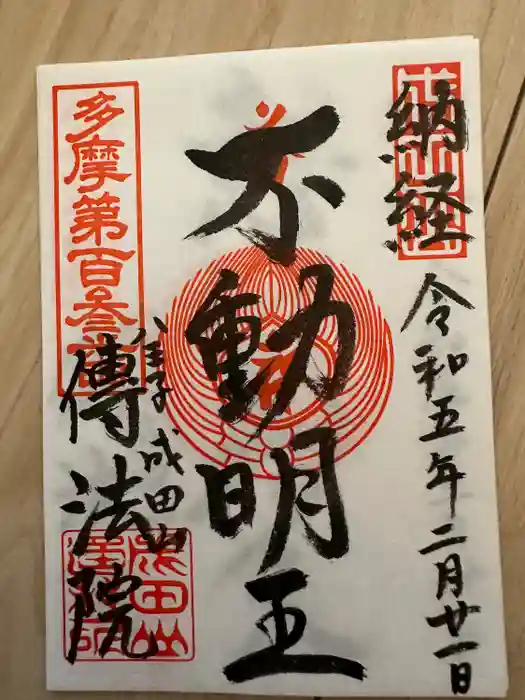 納経
令和五年二月廿一日
不動明王
八王子成田山
傳法院
多摩第百叁